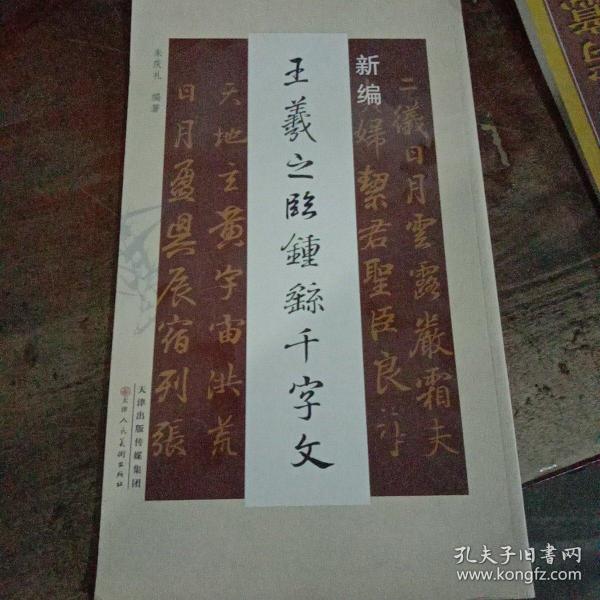 新编
王羲之临鍾繇千字文
朱庆礼 编著
二儀日月雲露嚴霜夫
婦絜君聖臣良
天地玄黄宇宙洪荒
日月盈昃辰宿列張
天津出版传媒集团
天津人民美術出版社
孔夫子旧书网
www.kongfz.com